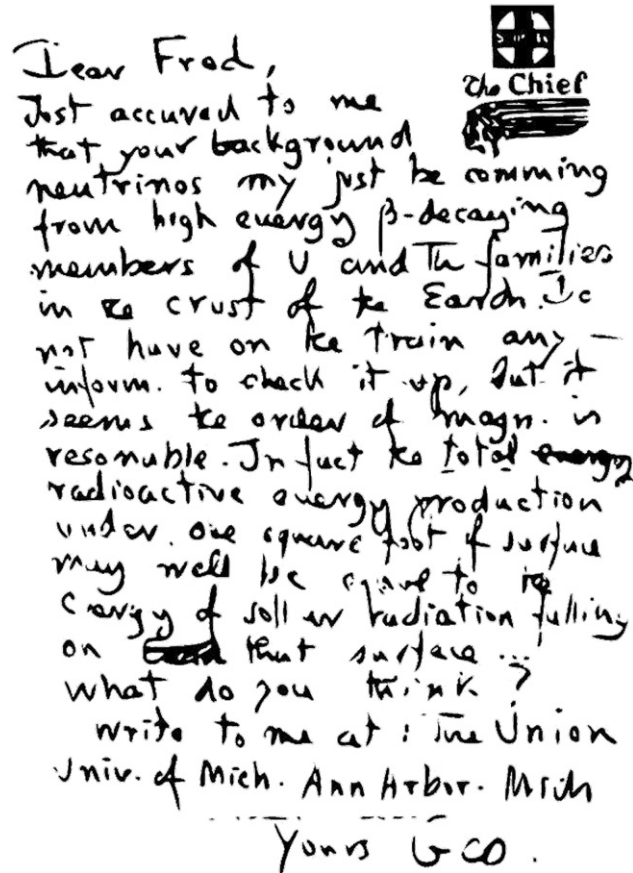 The Chief
Dear Fred,
Just accured to me
that your background
neutrinos my just be comming
from high energy β-decaying
members of U and Th families
in te crust of te Earth. I
not have on te train any
inform. to check it up, but it
seems te order of magn. is
resonuble. In fact te total energy
radioactive energy production
under one square foot of surface
may well be equal to te
energy of soller radiation fulling
on that surface...
What do you think?
Write to me at: The Union
Univ. of Mich. Ann Arbor. Mich
Yours GEO.